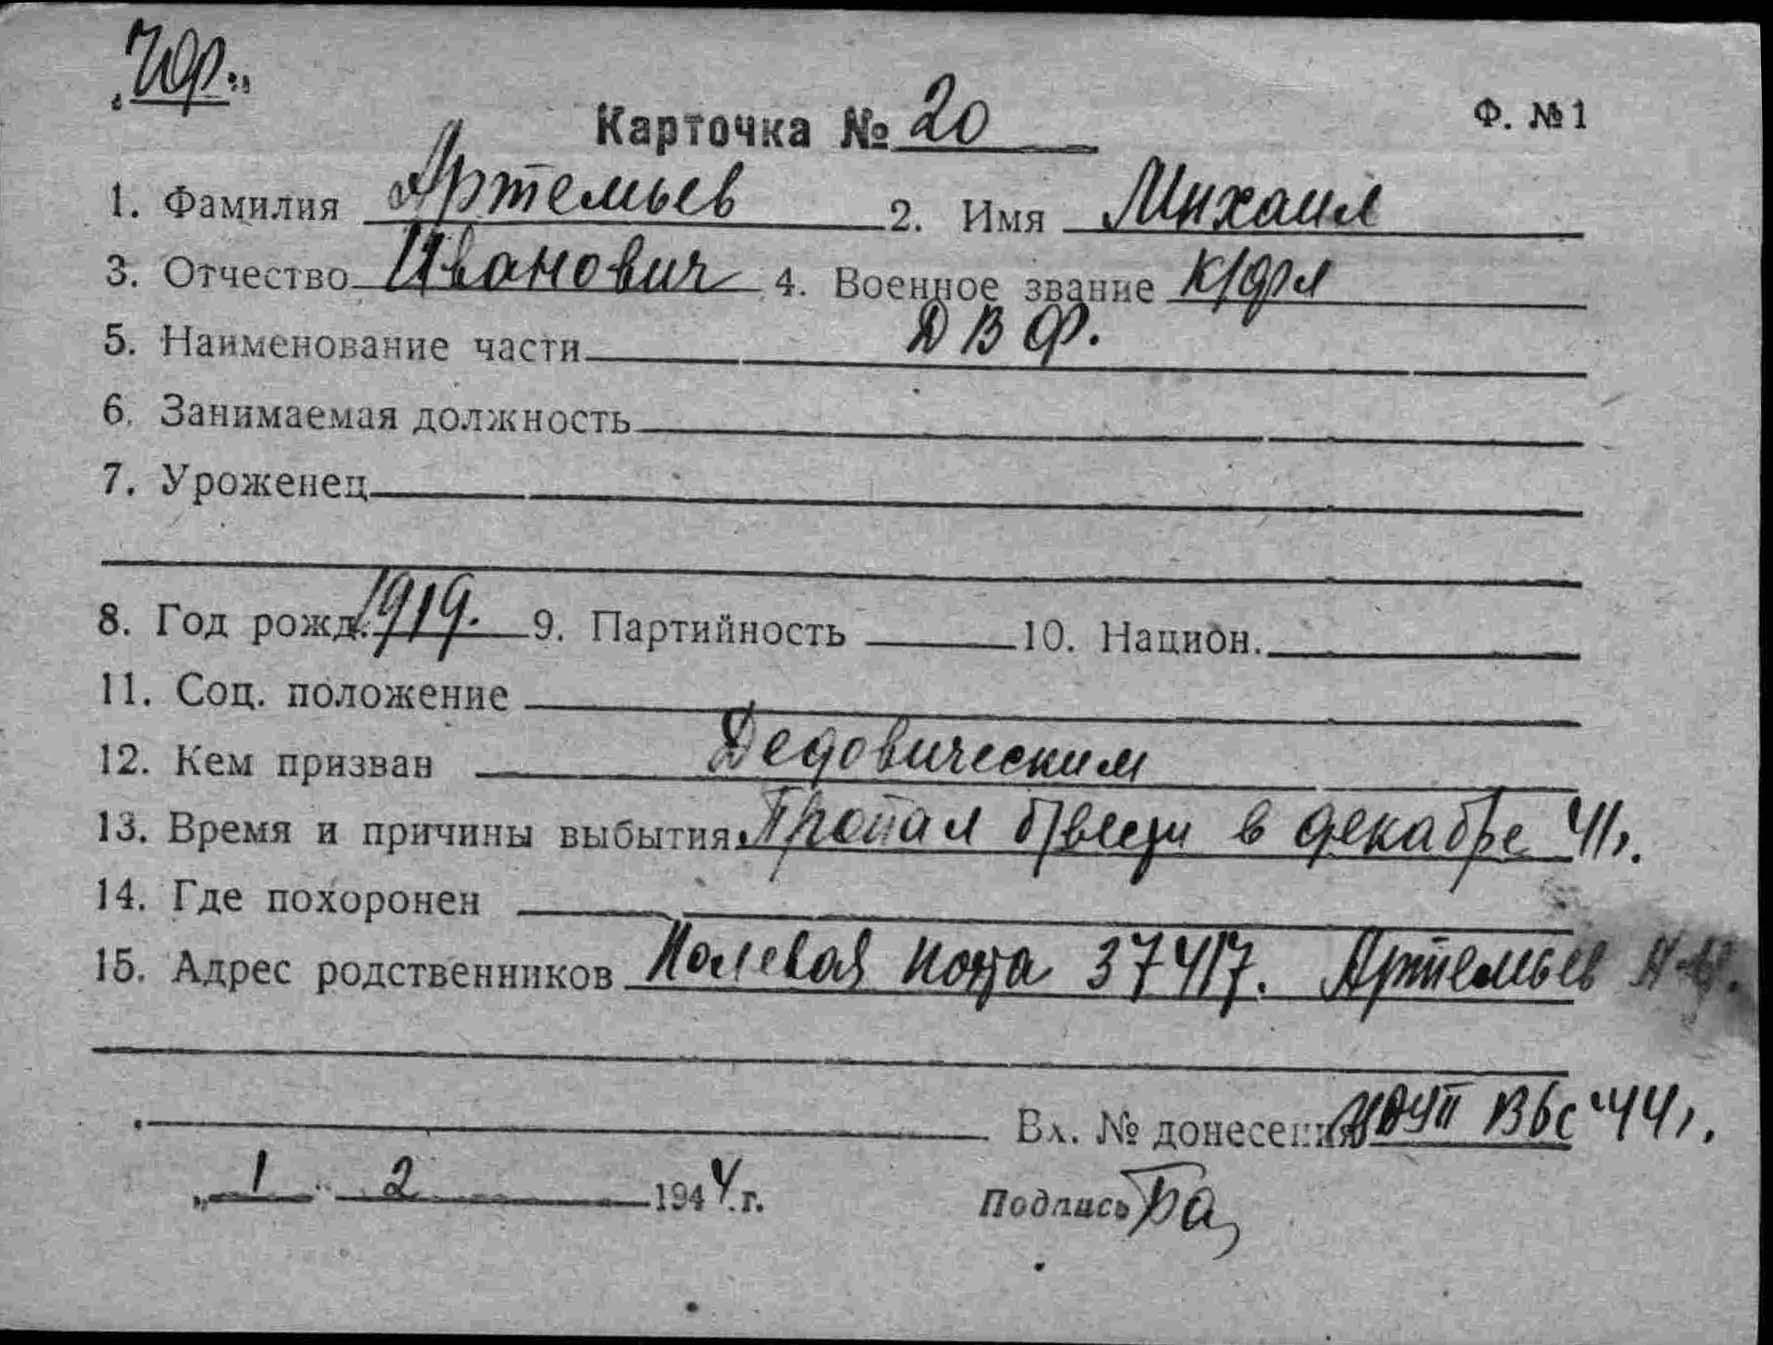 Карточка № 20 Ф. № 1
1. Фамилия Артемьев 2. Имя Михаил
3. Отчество Иванович 4. Военное звание к/фл
5. Наименование части ДВФ.
6. Занимаемая должность
7. Уроженец
8. Год рожд. 1919. 9. Партийность 10. Национ.
11. Соц. положение
12. Кем призван Дедовическим
13. Время и причины выбытия Пропал б/вести в декабре 41г.
14. Где похоронен
15. Адрес родственников Полевая почта 37417. Артемьев
Вх. № донесения 44г.
„ 1 " 2 1944 г. Подпись